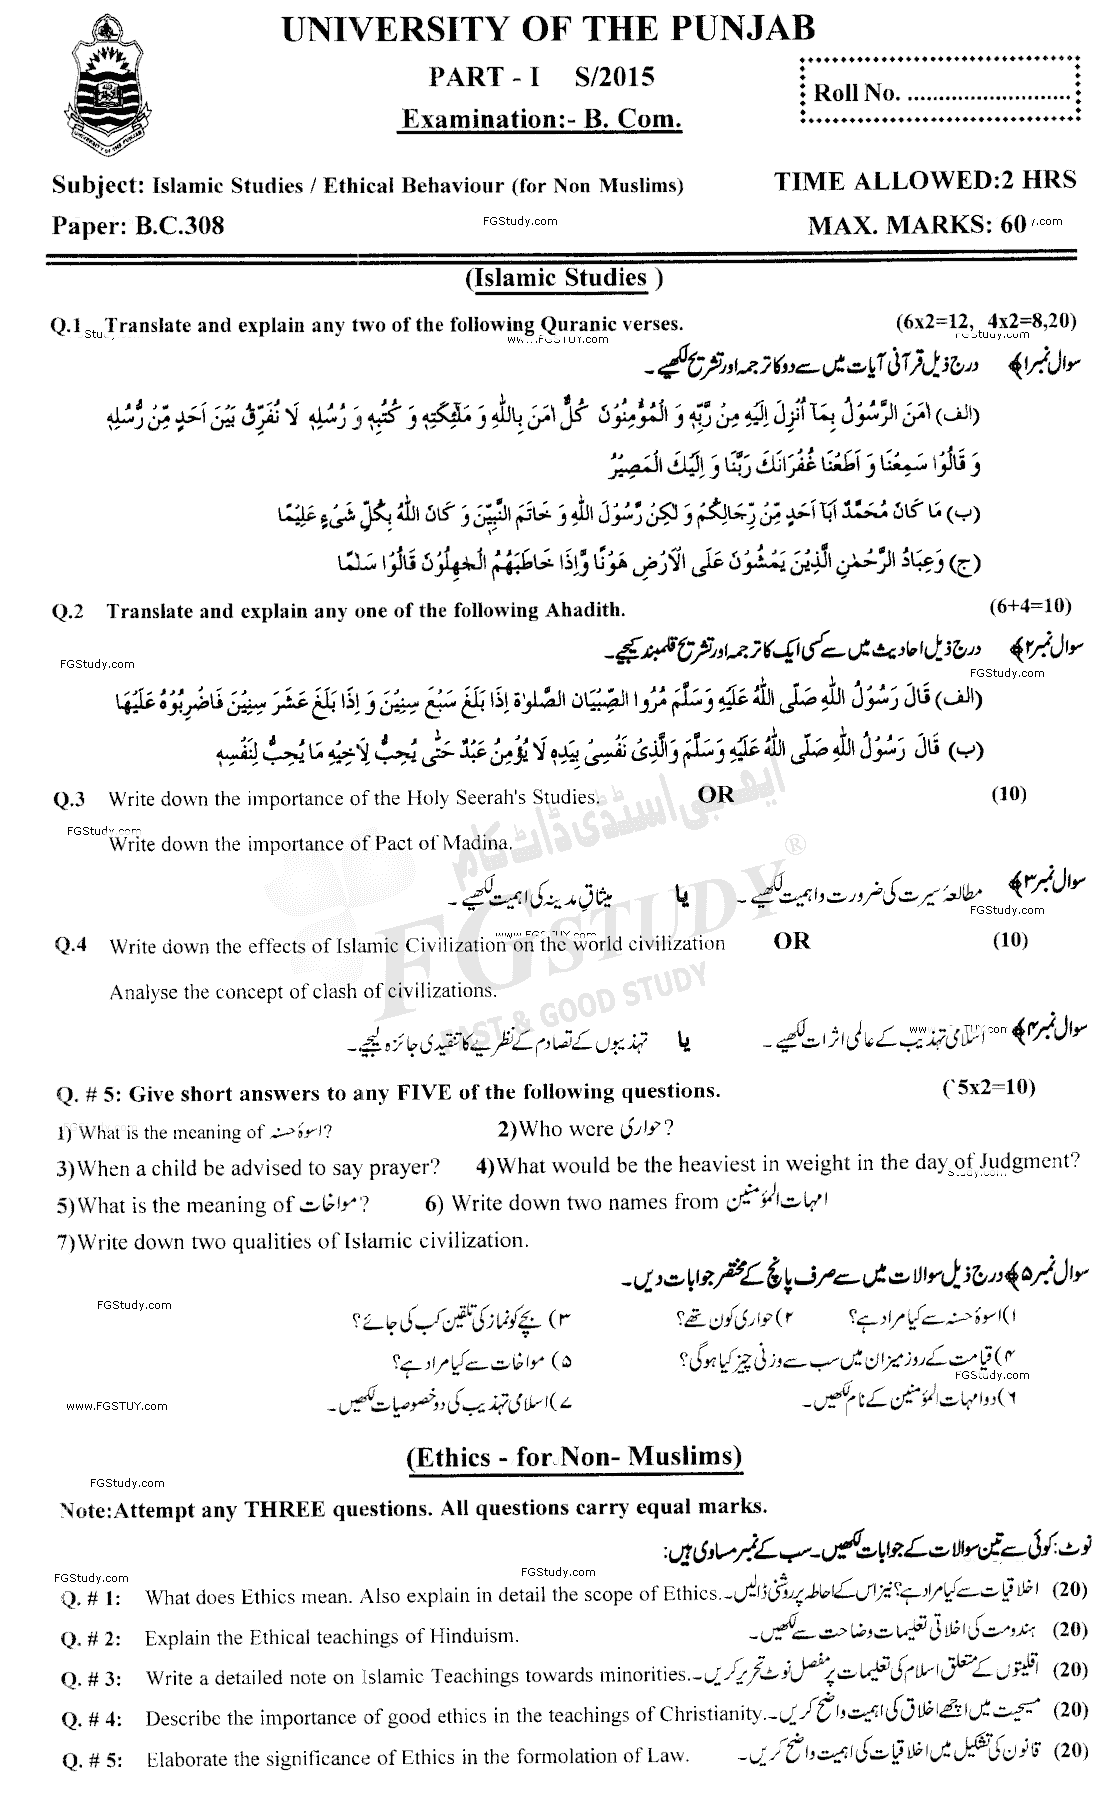 UNIVERSITY OF THE PUNJAB
PART - I S/2015
Examination:- B. Com.
Roll No. ..........................
UNIVERSITY OF THE PUNJAB
Subject: Islamic Studies / Ethical Behaviour (for Non Muslims)
TIME ALLOWED:2 HRS
Paper: B.C.308
FGStudy.com
MAX. MARKS: 60
(Islamic Studies )
Q.1 Translate and explain any two of the following Quranic verses. (6x2=12, 4x2=8,20)
سوال نمبر۱﴾ درج ذیل قرآنی آیات میں سے دو کا ترجمہ اور تشریح لکھیے۔
(الف) اٰمَنَ الرَّسُوْلُ بِمَآ اُنْزِلَ اِلَيْهِ مِنْ رَّبِّهٖ وَ الْمُؤْمِنُوْنَ كُلٌّ اٰمَنَ بِاللّٰهِ وَ مَلٰٓئِكَتِهٖ وَ كُتُبِهٖ وَ رُسُلِهٖ لَا نُفَرِّقُ بَيْنَ اَحَدٍ مِّنْ رُّسُلِهٖ
وَ قَالُوْا سَمِعْنَا وَ اَطَعْنَا غُفْرَانَكَ رَبَّنَا وَ اِلَيْكَ الْمَصِيْرُ
(ب) مَا كَانَ مُحَمَّدٌ اَبَآ اَحَدٍ مِّنْ رِّجَالِكُمْ وَ لٰكِنْ رَّسُوْلَ اللّٰهِ وَ خَاتَمَ النَّبِيّٖنَ وَ كَانَ اللّٰهُ بِكُلِّ شَيْءٍ عَلِيْمًا
(ج) وَعِبَادُ الرَّحْمٰنِ الَّذِيْنَ يَمْشُوْنَ عَلَى الْاَرْضِ هَوْنًا وَّاِذَا خَاطَبَهُمُ الْجٰهِلُوْنَ قَالُوْا سَلٰمًا
Q.2 Translate and explain any one of the following Ahadith. (6+4=10)
سوال نمبر۲﴾ درج ذیل احادیث میں سے کسی ایک کا ترجمہ اور تشریح قلمبند کیجیے۔
FGStudy.com
FGStudy.com
(الف) قَالَ رَسُوْلُ اللّٰهِ صَلَّى اللّٰهُ عَلَيْهِ وَسَلَّمَ مُرُوا الصِّبْيَانَ الصَّلٰوةَ اِذَا بَلَغَ سَبْعَ سِنِيْنَ وَ اِذَا بَلَغَ عَشَرَ سِنِيْنَ فَاضْرِبُوْهُ عَلَيْهَا
(ب) قَالَ رَسُوْلُ اللّٰهِ صَلَّى اللّٰهُ عَلَيْهِ وَسَلَّمَ وَالَّذِىْ نَفْسِىْ بِيَدِهٖ لَا يُؤْمِنُ عَبْدٌ حَتّٰى يُحِبُّ لِاَخِيْهِ مَا يُحِبُّ لِنَفْسِهٖ
Q.3 Write down the importance of the Holy Seerah's Studies. OR (10)
FGStudy.com
Write down the importance of Pact of Madina.
ایف جی اسٹڈی ڈاٹ کام
FGSTUDY®
FAST & GOOD STUDY
سوال نمبر۳﴾ مطالعۂ سیرت کی ضرورت و اہمیت لکھیے۔ یا میثاقِ مدینہ کی اہمیت لکھیے۔
FGStudy.com
Q.4 Write down the effects of Islamic Civilization on the world civilization OR (10)
Analyse the concept of clash of civilizations.
سوال نمبر۴﴾ اسلامی تہذیب کے عالمی اثرات لکھیے۔ یا تہذیبوں کے تصادم کے نظریے کا تنقیدی جائزہ لیجیے۔
Q. # 5: Give short answers to any FIVE of the following questions. (5x2=10)
1) What is the meaning of اسوۂ حسنہ? 2)Who were حواری?
3)When a child be advised to say prayer? 4)What would be the heaviest in weight in the day of Judgment?
5)What is the meaning of مواخات? 6) Write down two names from امہات المؤمنین
7)Write down two qualities of Islamic civilization.
سوال نمبر۵﴾ درج ذیل سوالات میں سے صرف پانچ کے مختصر جوابات دیں۔
FGStudy.com
۱) اسوۂ حسنہ سے کیا مراد ہے؟ ۲) حواری کون تھے؟ ۳) بچے کو نماز کی تلقین کب کی جائے؟
۴) قیامت کے روز میزان میں سب سے وزنی چیز کیا ہوگی؟ ۵) مواخات سے کیا مراد ہے؟
FGStudy.com
۶) دو امہات المؤمنین کے نام لکھیں۔ ۷) اسلامی تہذیب کی دو خصوصیات لکھیں۔
www.FGSTUY.com
(Ethics - for Non- Muslims)
FGStudy.com
Note:Attempt any THREE questions. All questions carry equal marks.
نوٹ: کوئی سے تین سوالات کے جوابات لکھیں۔ سب کے نمبر مساوی ہیں:
FGStudy.com
FGStudy.com
Q. # 1: What does Ethics mean. Also explain in detail the scope of Ethics. اخلاقیات سے کیا مراد ہے؟ نیز اس کے احاطہ پر روشنی ڈالیں۔ (20)
Q. # 2: Explain the Ethical teachings of Hinduism. ہندومت کی اخلاقی تعلیمات وضاحت سے لکھیں۔ (20)
Q. # 3: Write a detailed note on Islamic Teachings towards minorities. اقلیتوں کے متعلق اسلام کی تعلیمات پر مفصل نوٹ تحریر کریں۔ (20)
Q. # 4: Describe the importance of good ethics in the teachings of Christianity. مسیحیت میں اچھے اخلاق کی اہمیت واضح کریں۔ (20)
Q. # 5: Elaborate the significance of Ethics in the formolation of Law. قانون کی تشکیل میں اخلاقیات کی اہمیت واضح کریں۔ (20)